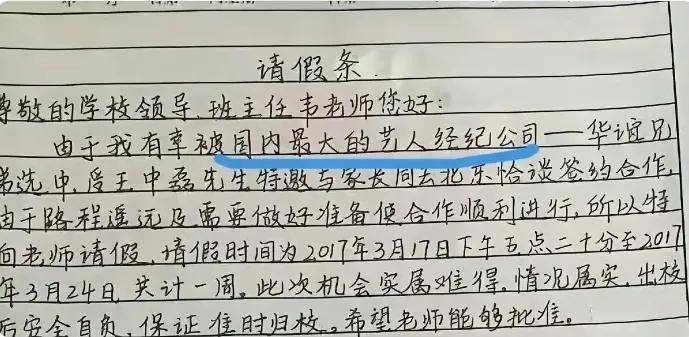 请假条.
尊敬的学校领导.班主任韦老师您好:
由于我有幸被国内最大的艺人经纪公司——华谊兄
弟选中,受王中磊先生特邀与家长同去北京恰谈签约合作,
由于路程遥远及需要做好准备使合作顺利进行,所以特
向老师请假,请假时间为2017年3月17日下午五点二十分至2017
年3月24日,共计一周。此次机会实属难得,情况属实,出校
后安全自负,保证准时归校。希望老师能够批准。